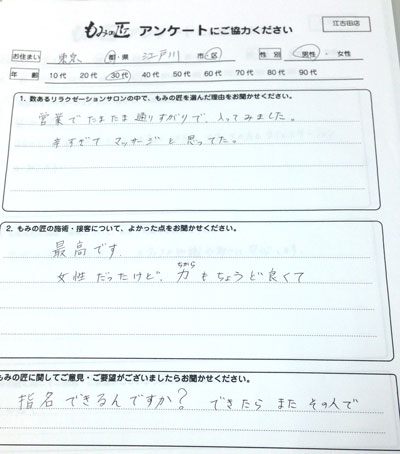 江古田店
もみの匠 アンケートにご協力ください
お住まい 東京 都・県 江戸川 市・区 性別 男性・女性
年齢 10代 20代 30代 40代 50代 60代 70代 80代 90代
1. 数あるリラクゼーションサロンの中で、もみの匠を選んだ理由をお聞かせください。
営業でたまたま通りすがりで、入ってみました。
マッサージと思ってた。
2. もみの匠の施術・接客について、よかった点をお聞かせください。
最高です。
ちから
女性だったけど、力もちょうど良くて
もみの匠に関してご意見・ご要望がございましたらお聞かせください。
指名できるんですか? できたら また その人で